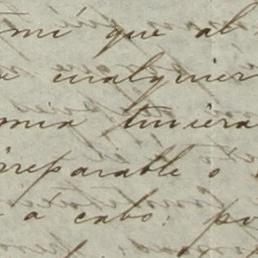 mí que al
cualquier
mia tuviera
irreparable o
a cabo. po